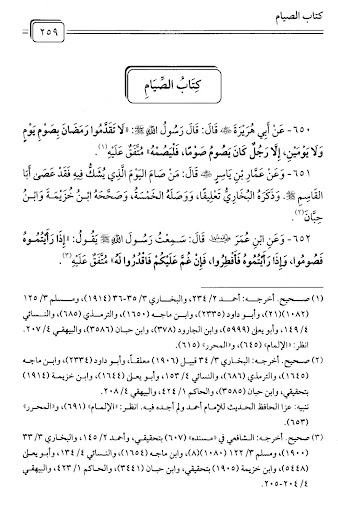 كتاب الصيام
٢٥٩
كِتَابُ الصِّيَامِ
٦٥٠- عَنْ أَبِي هُرَيْرَةَ ﷺ قَالَ: قَالَ رَسُولُ اللَّهِ ﷺ: «لَا تَقَدَّمُوا رَمَضَانَ بِصَوْمِ يَوْمٍ
وَلَا يَوْمَيْنِ، إِلَّا رَجُلٌ كَانَ يَصُومُ صَوْمًا، فَلْيَصُمْهُ» مُتَّفَقٌ عَلَيْهِ(١).
٦٥١- وَعَنْ عَمَّارِ بْنِ يَاسِرٍ قَالَ: مَنْ صَامَ الْيَوْمَ الَّذِي يُشَكُّ فِيهِ فَقَدْ عَصَى أَبَا
الْقَاسِمِ ﷺ. وَذَكَرَهُ الْبُخَارِيُّ تَعْلِيقًا، وَوَصَلَهُ الْخَمْسَةُ، وَصَحَّحَهُ ابْنُ خُزَيْمَةَ وَابْنُ
حِبَّانَ(٢).
٦٥٢- وَعَنِ ابْنِ عُمَرَ قَالَ: سَمِعْتُ رَسُولَ اللَّهِ ﷺ يَقُولُ: «إِذَا رَأَيْتُمُوهُ
فَصُومُوا، وَإِذَا رَأَيْتُمُوهُ فَأَفْطِرُوا، فَإِنْ غُمَّ عَلَيْكُمْ فَاقْدُرُوا لَهُ» مُتَّفَقٌ عَلَيْهِ(٣).
(١) صحيح. أخرجه: أحمد ٢/ ٢٣٤، والبخاري ٣/ ٣٥-٣٦ (١٩١٤)، ومسلم ٣/ ١٢٥
(١٠٨٢)(٢١)، وأبو داود (٢٣٣٥)، وابن ماجه (١٦٥٠)، والترمذي (٦٨٥)، والنسائي
٤/ ١٤٩، وأبو يعلى (٥٩٩٩)، وابن الجارود (٣٧٨)، وابن حبان (٣٥٨٦)، والبيهقي ٤/ ٢٠٧.
انظر: «الإلمام» (٦٤٥)، و«المحرر» (٦١٥).
(٢) صحيح. أخرجه: البخاري ٣/ ٣٤ قبيل (١٩٠٦) معلقاً، وأبو داود (٢٣٣٤)، وابن ماجه
(١٦٤٥)، والترمذي (٦٨٦)، والنسائي ٤/ ١٥٣، وأبو يعلى (١٦٤٤)، وابن خزيمة (١٩١٤)
بتحقيقي، وابن حبان (٣٥٨٥)، والحاكم ١/ ٤٢٤، والبيهقي ٤/ ٢٠٨.
تنبيه: عزا الحافظ الحديث للإمام أحمد ولم أجده فيه. انظر: «الإلمام» (٦٩١)، و«المحرر»
(٦٥٣).
(٣) صحيح. أخرجه: الشافعي في «مسنده» (٦٠٧) بتحقيقي، وأحمد ٢/ ١٤٥، والبخاري ٣/ ٣٣
(١٩٠٠)، ومسلم ٣/ ١٢٢ (١٠٨٠)(٨)، وابن ماجه (١٦٥٤)، والنسائي ٤/ ١٣٤، وأبو يعلى
(٥٤٤٨)، وابن خزيمة (١٩٠٥) بتحقيقي، وابن حبان (٣٤٤١)، والحاكم ١/ ٤٢٣، والبيهقي
٤/ ٢٠٤-٢٠٥.